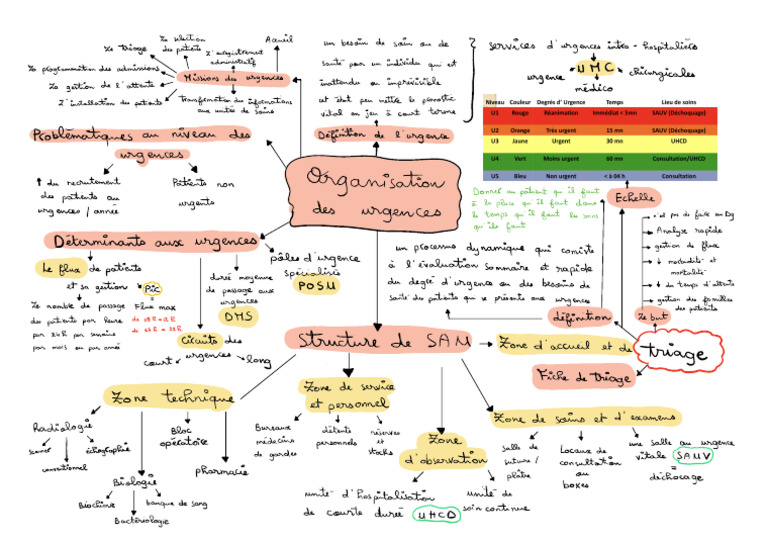 Organisation
des urgences
Missions des urgences
Accueil
L'enregistrement
administratif
La sélection
des patients
Le triage
La programmation des admissions
La gestion de l'attente
L'installation des patients
Transformation des informations
aux unités de soins
un besoin de soin ou de
santé pour un individu qui est
inattendu ou imprévisible
et doit peu mettre le pronostic
vital en jeu à court terme
Définition de l'urgence
services d'urgences intra-hospitalières
UMC
urgence
médico
chirurgicales
Niveau Couleur Degrés d' Urgence Temps Lieu de soins
U1 Rouge Réanimation Immédiat < 3mn SAUV (Déchoquage)
U2 Orange Très urgent 15 mn SAUV (Déchoquage)
U3 Jaune Urgent 30 mn UHCD
U4 Vert Moins urgent 60 mn Consultation/UHCD
U5 Bleu Non urgent < à 04 h Consultation
Donner au patient qu'il faut
à la place qu'il faut dans
le temps qu'il faut les soins
qu'ils faut
Echelle
Analyse rapide
gestion de flux
↓ morbidité et
mortalité
↓ du temps d'attente
gestion des familles
des patients
Le but
Problématiques au niveau des
urgences
↑ du recrutement
des patients au
urgences / année
Patients non
urgents
Déterminants aux urgences
Le flux de patients
et sa gestion
Pic
=
Flux max
Le nombre de passage
des patients par heure
par 24R par semaine
par mois ou par année
durée moyenne
de passage aux
urgences
DMS
pôles d'urgence
spécialisés
POSU
Circuits des
urgences
court
long
un processus dynamique qui consiste
à l'évaluation sommaire et rapide
du degré d'urgence ou des besoins de
santé des patients qui se présente aux urgences
définition
triage
Fiche de triage
Structure de SAU
Zone d'accueil et de
Zone technique
Radiologie
scanner
conventionnel
échographie
Biologie
Biochimie
Bactériologie
banque de sang
Bloc
opératoire
pharmacie
Zone de service
et personnel
Bureaux
médecins
de gardes
détente
personnels
réserves
et
stocks
Zone
d'observation
unité d'hospitalisation
de courte durée UHCD
unité de
soin continue
Zone de soins et d'examens
salle de
suture /
plâtre
Locaux de
consultation
ou
boxes
une salle au urgence
vitale SAUV
déchocage